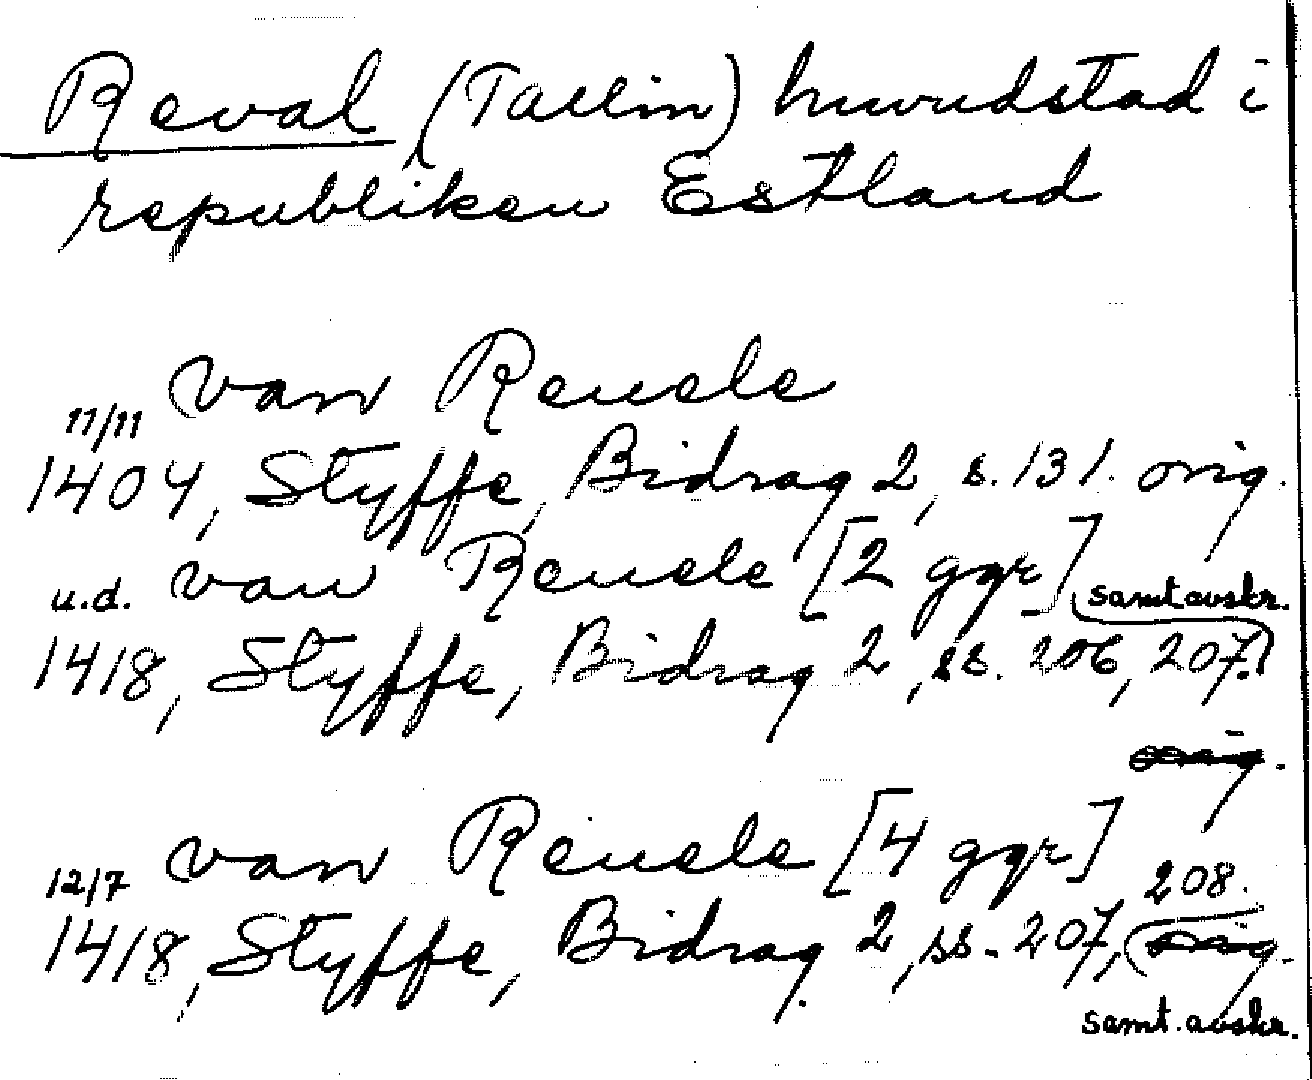 Reval (Tallin) huvudstad i
republiken Estland
van Reuele
11/11
1404, Styffe, Bidrag 2, s. 131. orig.
u.d. van Reuele [2 ggr]
samt. avskr.
1418, Styffe, Bidrag 2, ss. 206, 207.
orig.
12/7 van Reuele [4 ggr]
208.
1418, Styffe, Bidrag 2, ss. 207, orig.
samt. avskr.